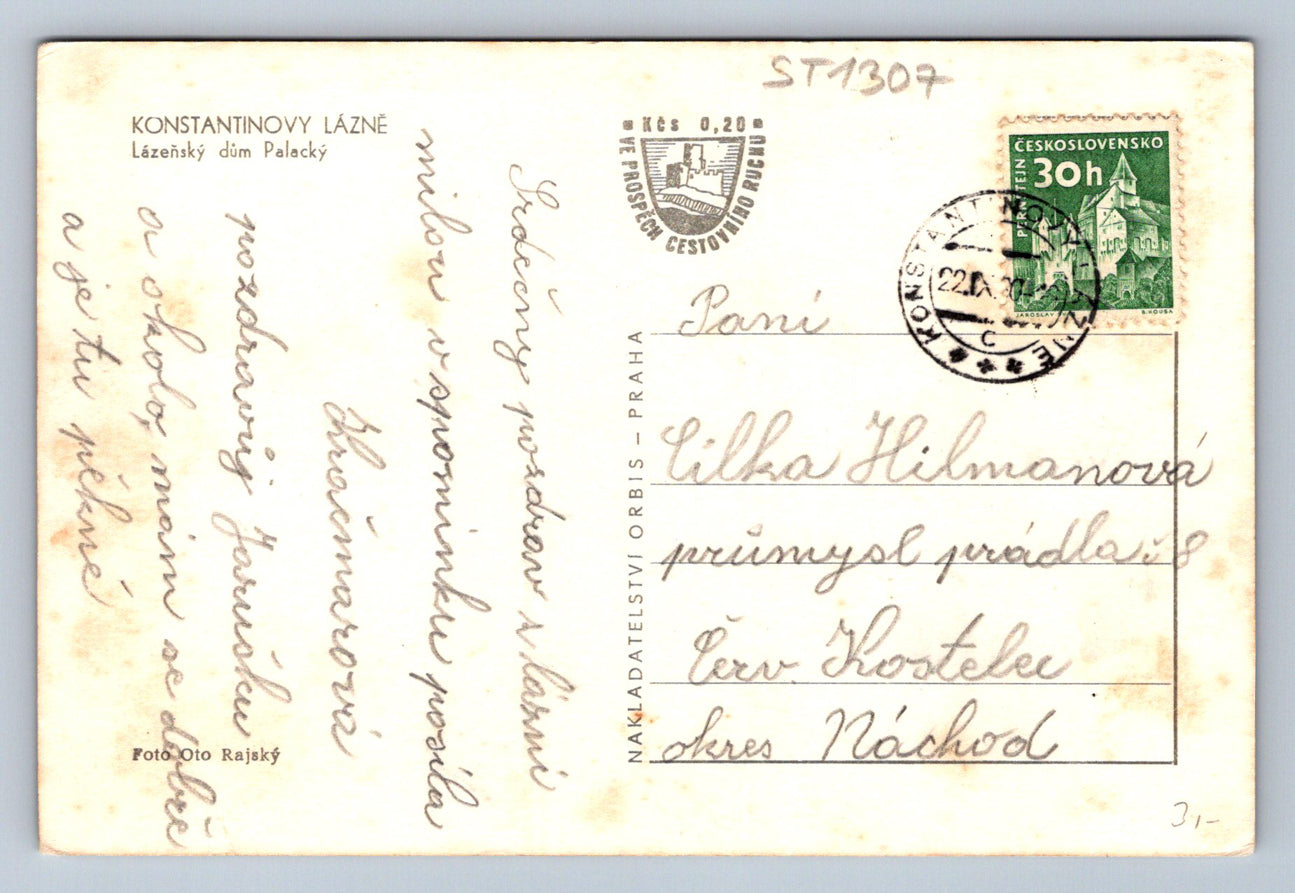 ST1307
KONSTANTINOVY LÁZNĚ
Lázeňský dům Palacký
Kčs 0,20
VE PROSPĚCH CESTOVNÍHO RUCHU
ČESKOSLOVENSKO
30h
PERNŠTEJN
JAROSLAV
KONSTANTINOVY LÁZNĚ
22.IX.
C
Srdečný pozdrav z lázní
milou vzpomínku posílá
Kračmarová
pozdravuj Jarušku
a okolo, mám se dobře
a je tu pěkně
Foto Oto Rajský
NAKLADATELSTVÍ ORBIS – PRAHA
Paní
Cilka Hilmanová
průmysl prádla č 8
Červ. Kostelec
okres Náchod
3,-